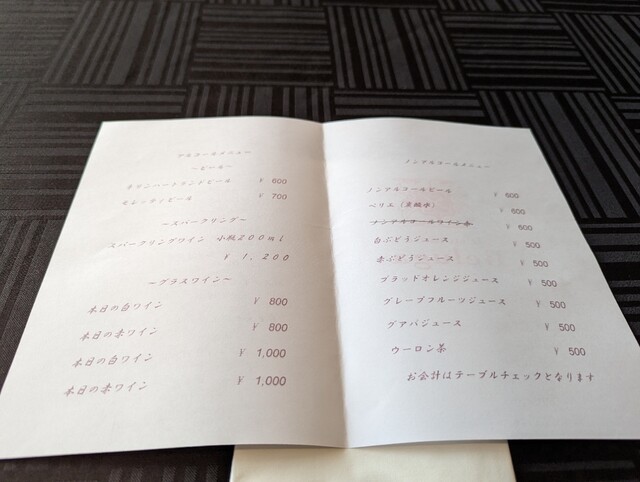 アルコールメニュー
~ビール~
キリンハートランドビール ¥ 600
セレッティビール ¥ 700
~スパークリング~
スパークリングワイン 小瓶200ml
¥ 1,200
~グラスワイン~
本日の白ワイン ¥ 800
本日の赤ワイン ¥ 800
本日の白ワイン ¥ 1,000
本日の赤ワイン ¥ 1,000
ノンアルコールメニュー
ノンアルコールビール ¥ 600
ペリエ(炭酸水) ¥ 600
ノンアルコールワイン赤 ¥ 500
白ぶどうジュース ¥ 500
赤ぶどうジュース ¥ 500
ブラッドオレンジジュース ¥ 500
グレープフルーツジュース ¥ 500
グアバジュース ¥ 500
ウーロン茶 ¥ 500
お会計はテーブルチェックとなります